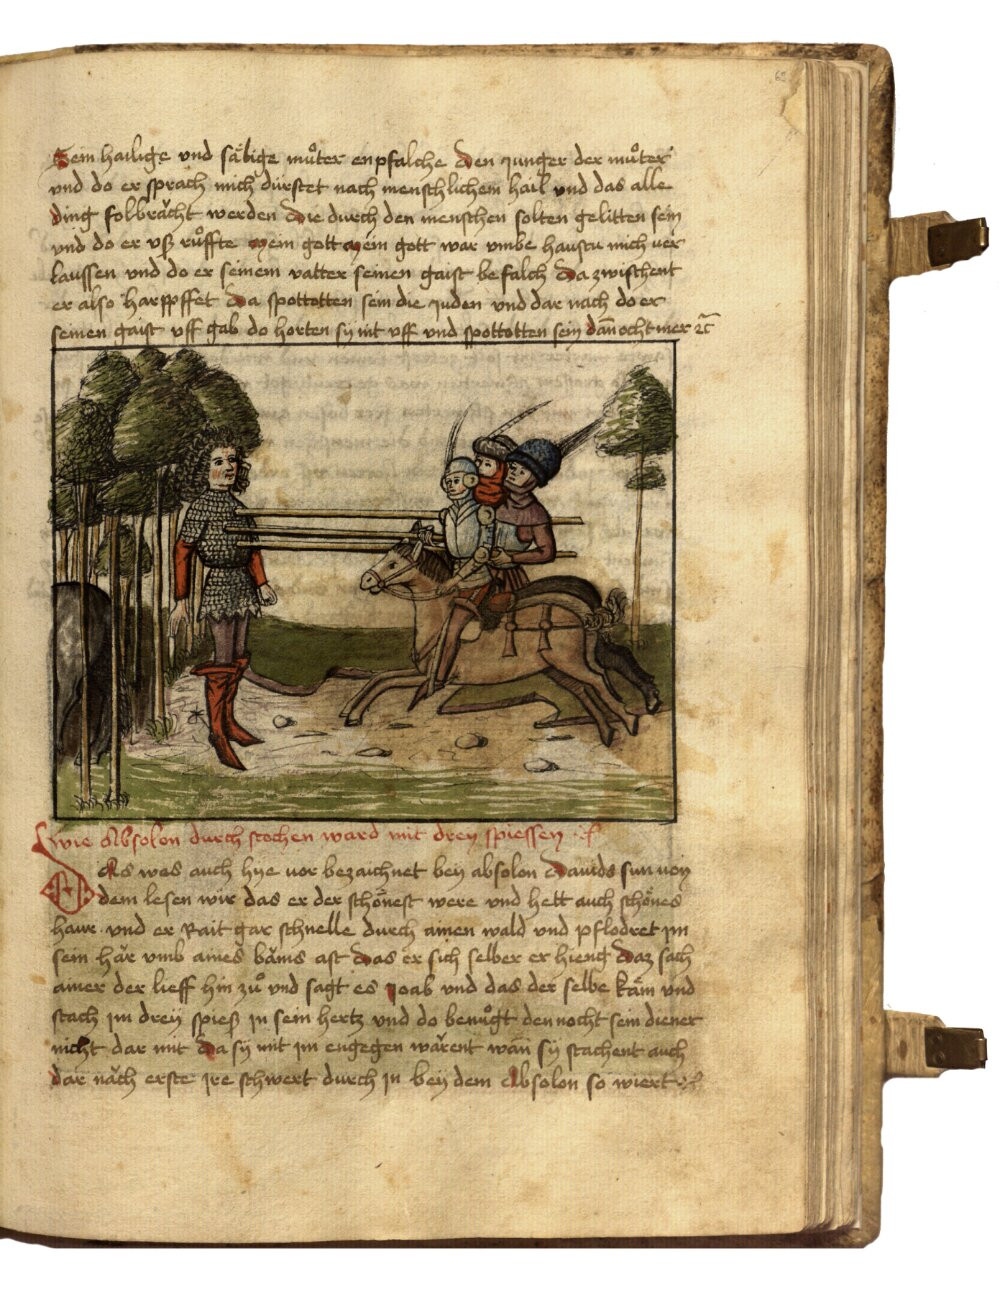 65
Sein hailige vnd säbige muͦter enpfalche den Junger der muͦter
vnd do er sprach mich dúrstet nach menschlichem hail vnd das alle
ding folbrächt werden die durch den menschen solten gelitten sein
vnd do er vß ruͦffte Mein gott Mein gott war vmbe hastu mich ver
laussen vnd do er seinem vatter seinen gaist befalch Da zwischent
er also harpffet Da spottotten sein die Juden vnd dar nach do er
seinen gaist vff gab do horten sy nit vff vnd spottotten sein dan̄ocht mer ⁊c
wie Absolon durch stochen ward mit dreÿ spiessen
Das was auch hye vor bezaichnet beÿ absolon Dauids sun von
dem lesen wir das er der schönest were vnd hett auch schönes
haur vnd er Rait gar schnelle durch ainen wald vnd pflodret im
sein här vmb aines bäms ast das er sich selber er hieng Daz sach
ainer der lieff hin zuͦ vnd sagt es Joab vnd das der selbe käm vnd
stach im dreÿ spieß in sein hertz vnd do benuͦgt dennocht sein diener
nicht dar mit Da sÿ mit im engegen wärent wan̄ sÿ stachent auch
dar näch erste ire schwert durch in beÿ dem Absolon so wiert